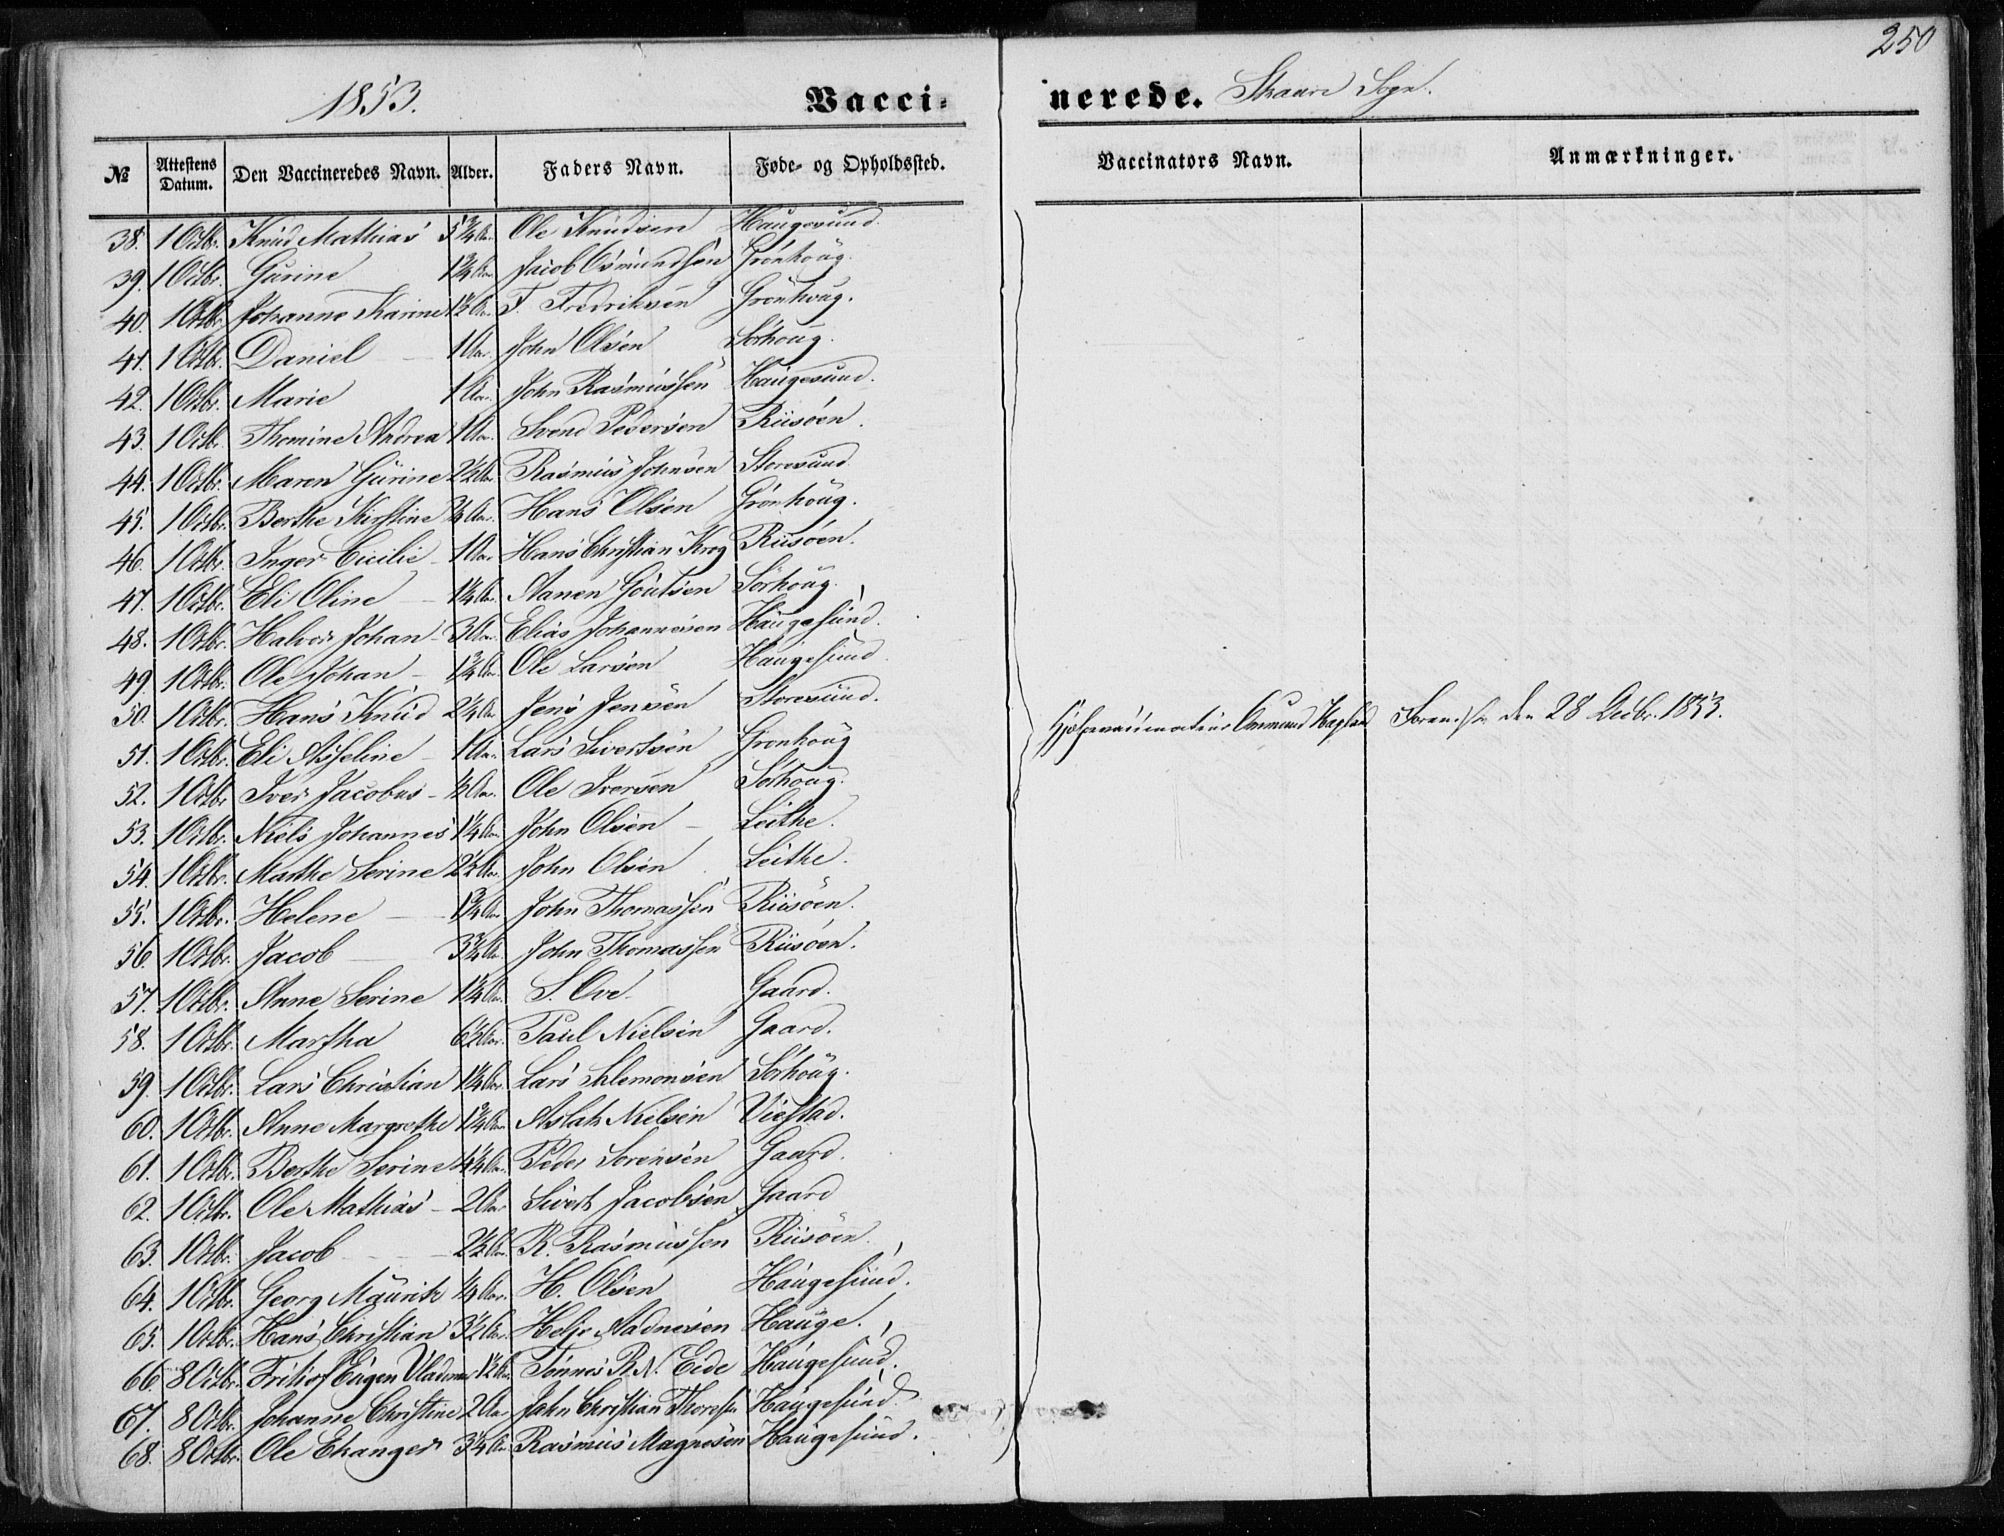 250
1853.
Vacci-
nerede. Skaare Sogn.
№ Attestens Datum. Den Vaccineredes Navn. Alder. Faders Navn. Føde- og Opholdssted. Vaccinators Navn. Anmærkninger.
38. 1 Octbr. Knud Mathias 5¾ Aar. Ole Knudsen Haugesund.
39. 1 Octbr. Gurine 1¾ Aar. Jacob Osmundsen Grønhoug.
40. 1 Octbr. Johanne Karine 1½ Aar. T. Fredriksen Grønhoug.
41. 1 Octbr. Daniel 1 Aar. John Olsen Sørhoug.
42. 1 Octbr. Marie 1 Aar. John Rasmussen Haugesund.
43. 1 Octbr. Thomine Andrea 1 Aar. Svend Pedersen Riisøen.
44. 1 Octbr. Maren Gurine 2½ Aar. Rasmus Johnsen Storesund
45. 1 Octbr. Berthe Kirstine ¾ Aar. Hans Olsen Grønhoug.
46. 1 Octbr. Inger Cicilie 1 Aar. Hans Christian Krog Riisøen.
47. 1 Octbr. Eli Oline 1¼ Aar. Aanen Goutsen Sørhoug.
48. 1 Octbr. Halvor Johan 3 Aar. Elias Johannesen Haugesund.
49. 1 Octbr. Ole Johan 1¾ Aar Ole Larsen Haugesund
50. 1 Octbr. Hans Knud 2¼ Aar Jens Jensen Storesund.
Hjelpevaccinateur Amund Hagland Foran. den 28 Decbr. 1853.
51. 1 Octbr. Eli Asseline 1 Aar. Lars Sivertsen Grønhoug
52. 1 Octbr. Iver Jacobus ½ Aar. Ole Iversen Sørhoug.
53. 1 Octbr. Niels Johannes 1¼ Aar. John Olsen Leithe.
54. 1 Octbr. Marthe Serine 2½ Aar. John Olsen Leithe.
55. 1 Octbr. Helene 1¾ Aar John Thomassen Riisøen.
56. 1 Octbr. Jacob 3¾ Aar. John Thomassen Riisøen.
57. 1 Octbr. Anne Serine 1¼ Aar. S. Ove. Gaard.
58. 1 Octbr. Martha 6½ Aar. Paul Nielsen Gaard.
59. 1 Octbr. Lars Christian 1¼ Aar. Lars Salemonsen Sørhoug.
60. 1 Octbr. Anne Margrethe 1¾ Aar. Aslak Nielsen Viestad.
61. 1 Octbr. Berthe Serine 4¼ Aar. Peder Sorensen Gaard.
62. 1 Octbr. Ole Mathias 2 Aar Sivert Jacobsen Gaard
63. 1 Octbr. Jacob 2½ Aar. R. Rasmussen Riisøen.
64. 1 Octbr. Georg Mauritz ¼ Aar. H. Olsen Haugesund.
65. 1 Octbr. Hans Christian 3½ Aar. Helje Aadnesen Hauge.
66. 8 Octbr. Fritiof Eugen Vladimar 1½ Aar. Tønnes R. N. Eide Haugesund.
67. 8 Octbr. Johanne Christine 2 Aar John Christian Thoresen Haugesund.
68. 8 Octbr. Ole Ehanger 3¼ Aar. Rasmus Magnesen Haugesund.